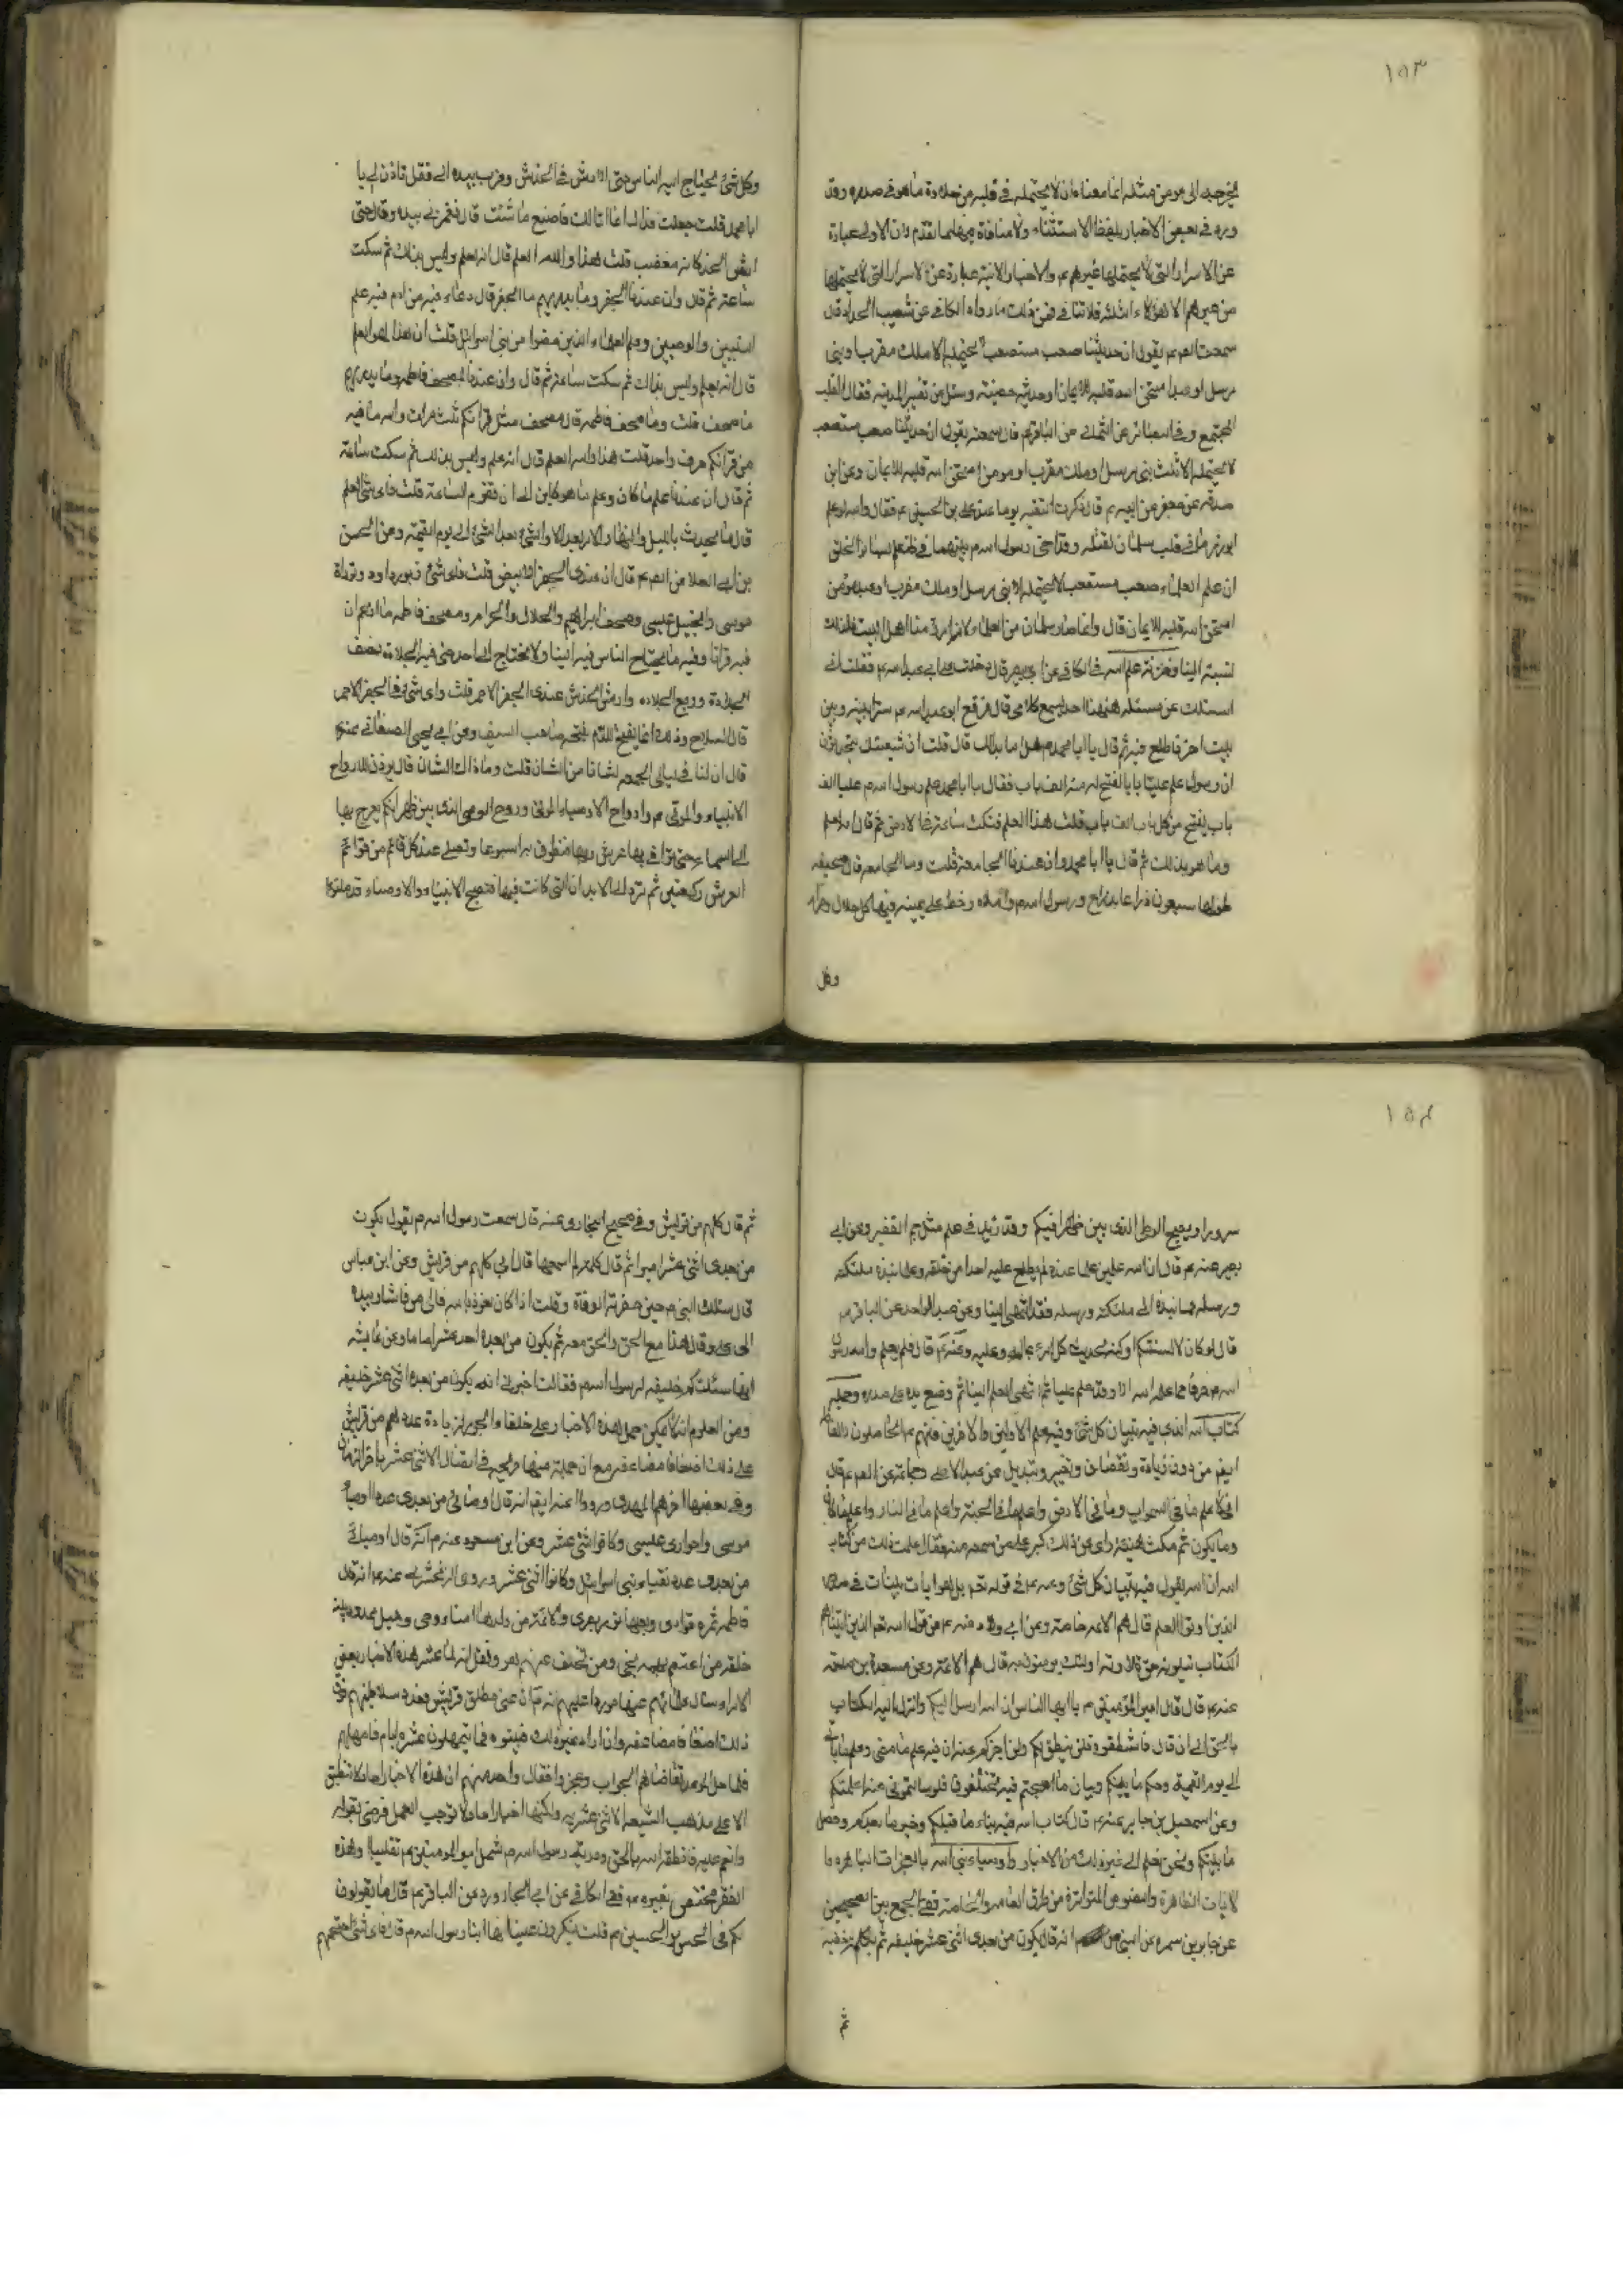 ١٥٣
يخرجه الى مومن مثله انما معناه ان لا يحتمله في قلبه من حلاوة ما هو في صدره وقد
ورد في بعض الاخبار بلفظ الاستثناء ولا منافاة بينهما تقدم لان الاولى عبارة
عن الاسرار التي لا يحتملها غيرهم والاخبار الاتية عبارة عن الاسرار التي لا يحتملها
من غيرهم الا هؤلاء الثلثة فلا تنافي فمن ذلك ما رواه الكافي عن شعيب الحداد قال
سمعت الصم يقول ان حديثنا صعب مستصعب لا يحتمله الا ملك مقرب او نبي
مرسل او عبد امتحن الله قلبه للايمان او مدينة حصينة وسئل عن تفسير المدينة فقال القلب
المجتمع وفي البصائر عن الثمالي عن الباقر قال سمعته يقول ان حديثنا صعب مستصعب
لا يحتمله الا ثلث نبي مرسل او ملك مقرب او مومن امتحن الله قلبه للايمان وعن ابن
صدقة عن جعفر عن ابيه م قال ذكرت التقية يوما عند علي بن الحسين م فقال والله لو علم
ابو ذر ما في قلب سلمان لقتله وقد اخى رسول الله م بينهما فما ظنكم بسائر الخلق
ان علم العلماء صعب مستصعب لا يحتمله الا نبي مرسل او ملك مقرب او عبد مومن
امتحن الله قلبه للايمان قال وانما صار سلمان من العلماء لانه امرؤ منا اهل البيت فلذلك
نسبته الينا وخزنة علم الله في الكافي عن ابي بصير قال دخلت على ابي عبد الله م فقلت اني
اسئلك عن مسئلة ههنا احد يسمع كلامي قال فرفع ابو عبد الله م سترا بينه وبين
بيت اخر فاطلع فيه ثم قال يا ابا محمد سل ما بدا لك قال قلت ان شيعتك يتحدثون
ان رسول علم عليا بابا يفتح له منه الف باب فقال يا ابا محمد علم رسول الله م عليا الف
باب يفتح من كل باب الف باب قلت هذا العلم فنكت ساعة في الارض ثم قال انه لعلم
وما هو بذلك ثم قال يا ابا محمد وان عندنا الجامعة قلت وما الجامعة قال صحيفة
طولها سبعون ذراعا بذراع رسول الله م واملاه وخط علي بيمينه فيها كل حلال وحرام
وكل
وكل شئ يحتاج اليه الناس حتى الارش في الخدش وضرب بيده الي فقال تاذن لي يا
ابا محمد قلت جعلت فداك انما انا لك فاصنع ما شئت قال فغمزني بيده وقال حتى
ارش هذا كانه مغضب قلت هذا والله العلم قال انه لعلم وليس بذلك ثم سكت
ساعة ثم قال وان عندنا الجفر وما يدريهم ما الجفر قال وعاء فيه من ادم فيه علم
النبيين والوصيين وعلم العلماء الذين مضوا من بني اسرائيل قلت ان هذا لهو العلم
قال انه لعلم وليس بذلك ثم سكت ساعة ثم قال وان عندنا لمصحف فاطمة وما يدريهم
ما مصحف قلت وما مصحف فاطمة قال مصحف مثل قرانكم ثلث مرات والله ما فيه
من قرانكم حرف واحد قلت هذا والله العلم قال انه علم وليس بذلك ثم سكت ساعة
ثم قال ان عندنا علم ما كان وعلم ما هو كاين الى ان تقوم الساعة قلت فاي شئ العلم
قال ما يحدث بالليل والنهار الامر بعد الامر والشئ بعد الشئ الى يوم القيمة وعن الحسين
بن ابي العلا عن الصم قال ان عندي الجفر الابيض قلت فاي شئ زبور داود وتوراة
موسى وانجيل عيسى وصحف ابراهيم والحلال والحرام ومصحف فاطمة ما ازعم ان
فيه قرانا وفيه ما يحتاج الناس فيه الينا ولا نحتاج الى احد حتى فيه الجلدة ونصف
الجلدة وربع الجلدة وارش الخدش عندي الجفر الاحمر قلت واي شئ في الجفر الاحمر
قال السلاح وذلك انما يفتح للدم يفتحه صاحب السيف وعن ابي يحيى الصنعاني عنه م
قال ان لنا في ليالي الجمعة لشانا من الشان قلت وما ذاك الشان قال يوذن لارواح
الانبياء والموتى م وارواح الاوصياء الموتى وروح الوصي الذي بين ظهرانيكم يعرج بها
الى السماء حتى توافي بها عرش ربها فتطوف به اسبوعا وتصلي عند كل قائمة من قوائم
العرش ركعتين ثم ترد الى الابدان التي كانت فيها فتصبح الانبياء والاوصياء قد ملئوا
١٥٤
سرورا ويصبح الوصي الذي بين ظهرانيكم وقد زيد في علمه مثل جم الغفير وعن ابي
بصير عنه م قال ان لله علمين علما عنده لم يطلع عليه احدا من خلقه وعلما نبذه ملئكته
ورسله فما نبذه الى ملئكته ورسله فقد انتهى الينا وعن عبد الواحد عن الباقر م
قال لو كان لالسنتكم اوكية لحدثت كل امرئ بماله وعليه وعنه م قال فلم يعلم والله رسول
الله م حرفا مما علمه الله الا وقد علمه عليا ثم انتهى العلم الينا ثم وضع يده على صدره وحملة
كتاب الله الذي فيه تبيان كل شئ وفيه علم الاولين والاخرين فانهم م الحاملون
ايض من دون زيادة ونقصان وتغيير وتبديل عن عبد الاعلى وجماعة عن الصم قال
اني لاعلم ما في السموات وما في الارض واعلم ما في الجنة واعلم ما في النار واعلم ما كان
وما يكون ثم مكث هنيئة فراى ان ذلك كبر على من سمعه منه فقال علمت ذلك من كتاب
الله ان الله يقول فيه تبيان كل شئ وعنه م في قوله تعم بل هو ايات بينات في صدور
الذين اوتوا العلم قال هم الائمة خاصة وعن ابي ولاد عنه م عن قول الله تعم الذين اتيناهم
الكتاب يتلونه حق تلاوته اولئك يومنون به قال هم الائمة وعن مسعدة بن صدقة
عنه م قال قال امير المؤمنين م يا ايها الناس ان الله ارسل اليكم وانزل اليه الكتاب
بالحق الى ان قال فاستنطقوه فلن ينطق لكم ولن اخبركم عنه ان فيه علم ما مضى وعلم ما ياتي
الى يوم القيمة وحكم ما بينكم وبيان ما اصبحتم فيه تختلفون فلو سالتموني عنه اعلمتكم
وعن اسمعيل بن جابر عنه م قال كتاب الله فيه نباء ما قبلكم وخبر ما بعدكم وفصل
ما بينكم ونحن نعلم الى غير ذلك من الاخبار واوصياء نبي الله بالمعجزات الباهرة و
الايات الظاهرة والنصوص المتواترة من طرق العامة والخاصة ففي الجمع بين الصحيحين
عن جابر بن سمره عن النبي انه قال يكون من بعدي اثني عشر خليفة ثم تكلم بخفية
ثم
ثم قال كلهم من قريش وفي صحيح البخاري عنه قال سمعت رسول الله م يقول يكون
من بعدي اثني عشر اميرا ثم قال كلمة لم اسمعها قال ابي كلهم من قريش وعن ابن عباس
قال سئلت النبي م حين حضرته الوفاة وقلت اذا كان نعوذ بالله فالى من فاشار بيده
الى علي وقال هذا مع الحق والحق معه ثم يكون من بعده احد عشر اماما وعن عايشة
انها سئلت كم خليفة لرسول الله م فقالت اخبرني انه يكون من بعده اثنى عشر خليفة
ومن المعلوم انه لا يمكن حمل هذه الاخبار على خلفاء الجور لزيادة عددهم من قريش
على ذلك اضعافا مضاعفة مع ان جملة منها صريحة في اتصال الاثني عشر باخر الزمان
وفي بعضها اخرهم المهدي ورووا عنه ايضم انه قال اوصيائي من بعدي عدد اوصياء
موسى وحواري عيسى وكانوا اثني عشر وعن ابن مسعود عنه م انه قال اوصيائي
من بعدي عدد نقباء بني اسرائيل وكانوا اثني عشر وروى الزمخشري عنه م انه قال
فاطمة ثمرة فؤادي وبعلها نور بصري والائمة من ولدها امناء وحي وحبل ممدود بينه
خلقه من اعتصم بهم نجى ومن تخلف عنهم هوى ونقل انه لما عثر هذه الاخبار بعض
الامراء وسال علمائهم عنها موردا عليهم انه ان عنى مطلق قريش فعدد سلاطينهم فوق
ذلك اضعافا مضاعفة وان اراد غير ذلك فبينوه فاستمهلوه عشرة ايام فامهلهم
فلما حل الموعد تقاضاهم الجواب وعجزوا فقال واحد منهم ان هذه الاخبار لا تنطبق
الا على مذهب الشيعة الاثني عشرية ولكنها اخبار احاد لا توجب العمل فرضي بقوله
وانعم عليه فانطقه الله بالحق وعترة رسول الله م شمل امير المومنين م تغليبا وهذه
الفقرة مختص بغيره م ففي الكافي عن ابي الجارود عن الباقر م قال ما يقولون
لكم في الحسن والحسين م قلت ينكرون علينا انهما ابنا رسول الله م قال فاي شئ احتججتم